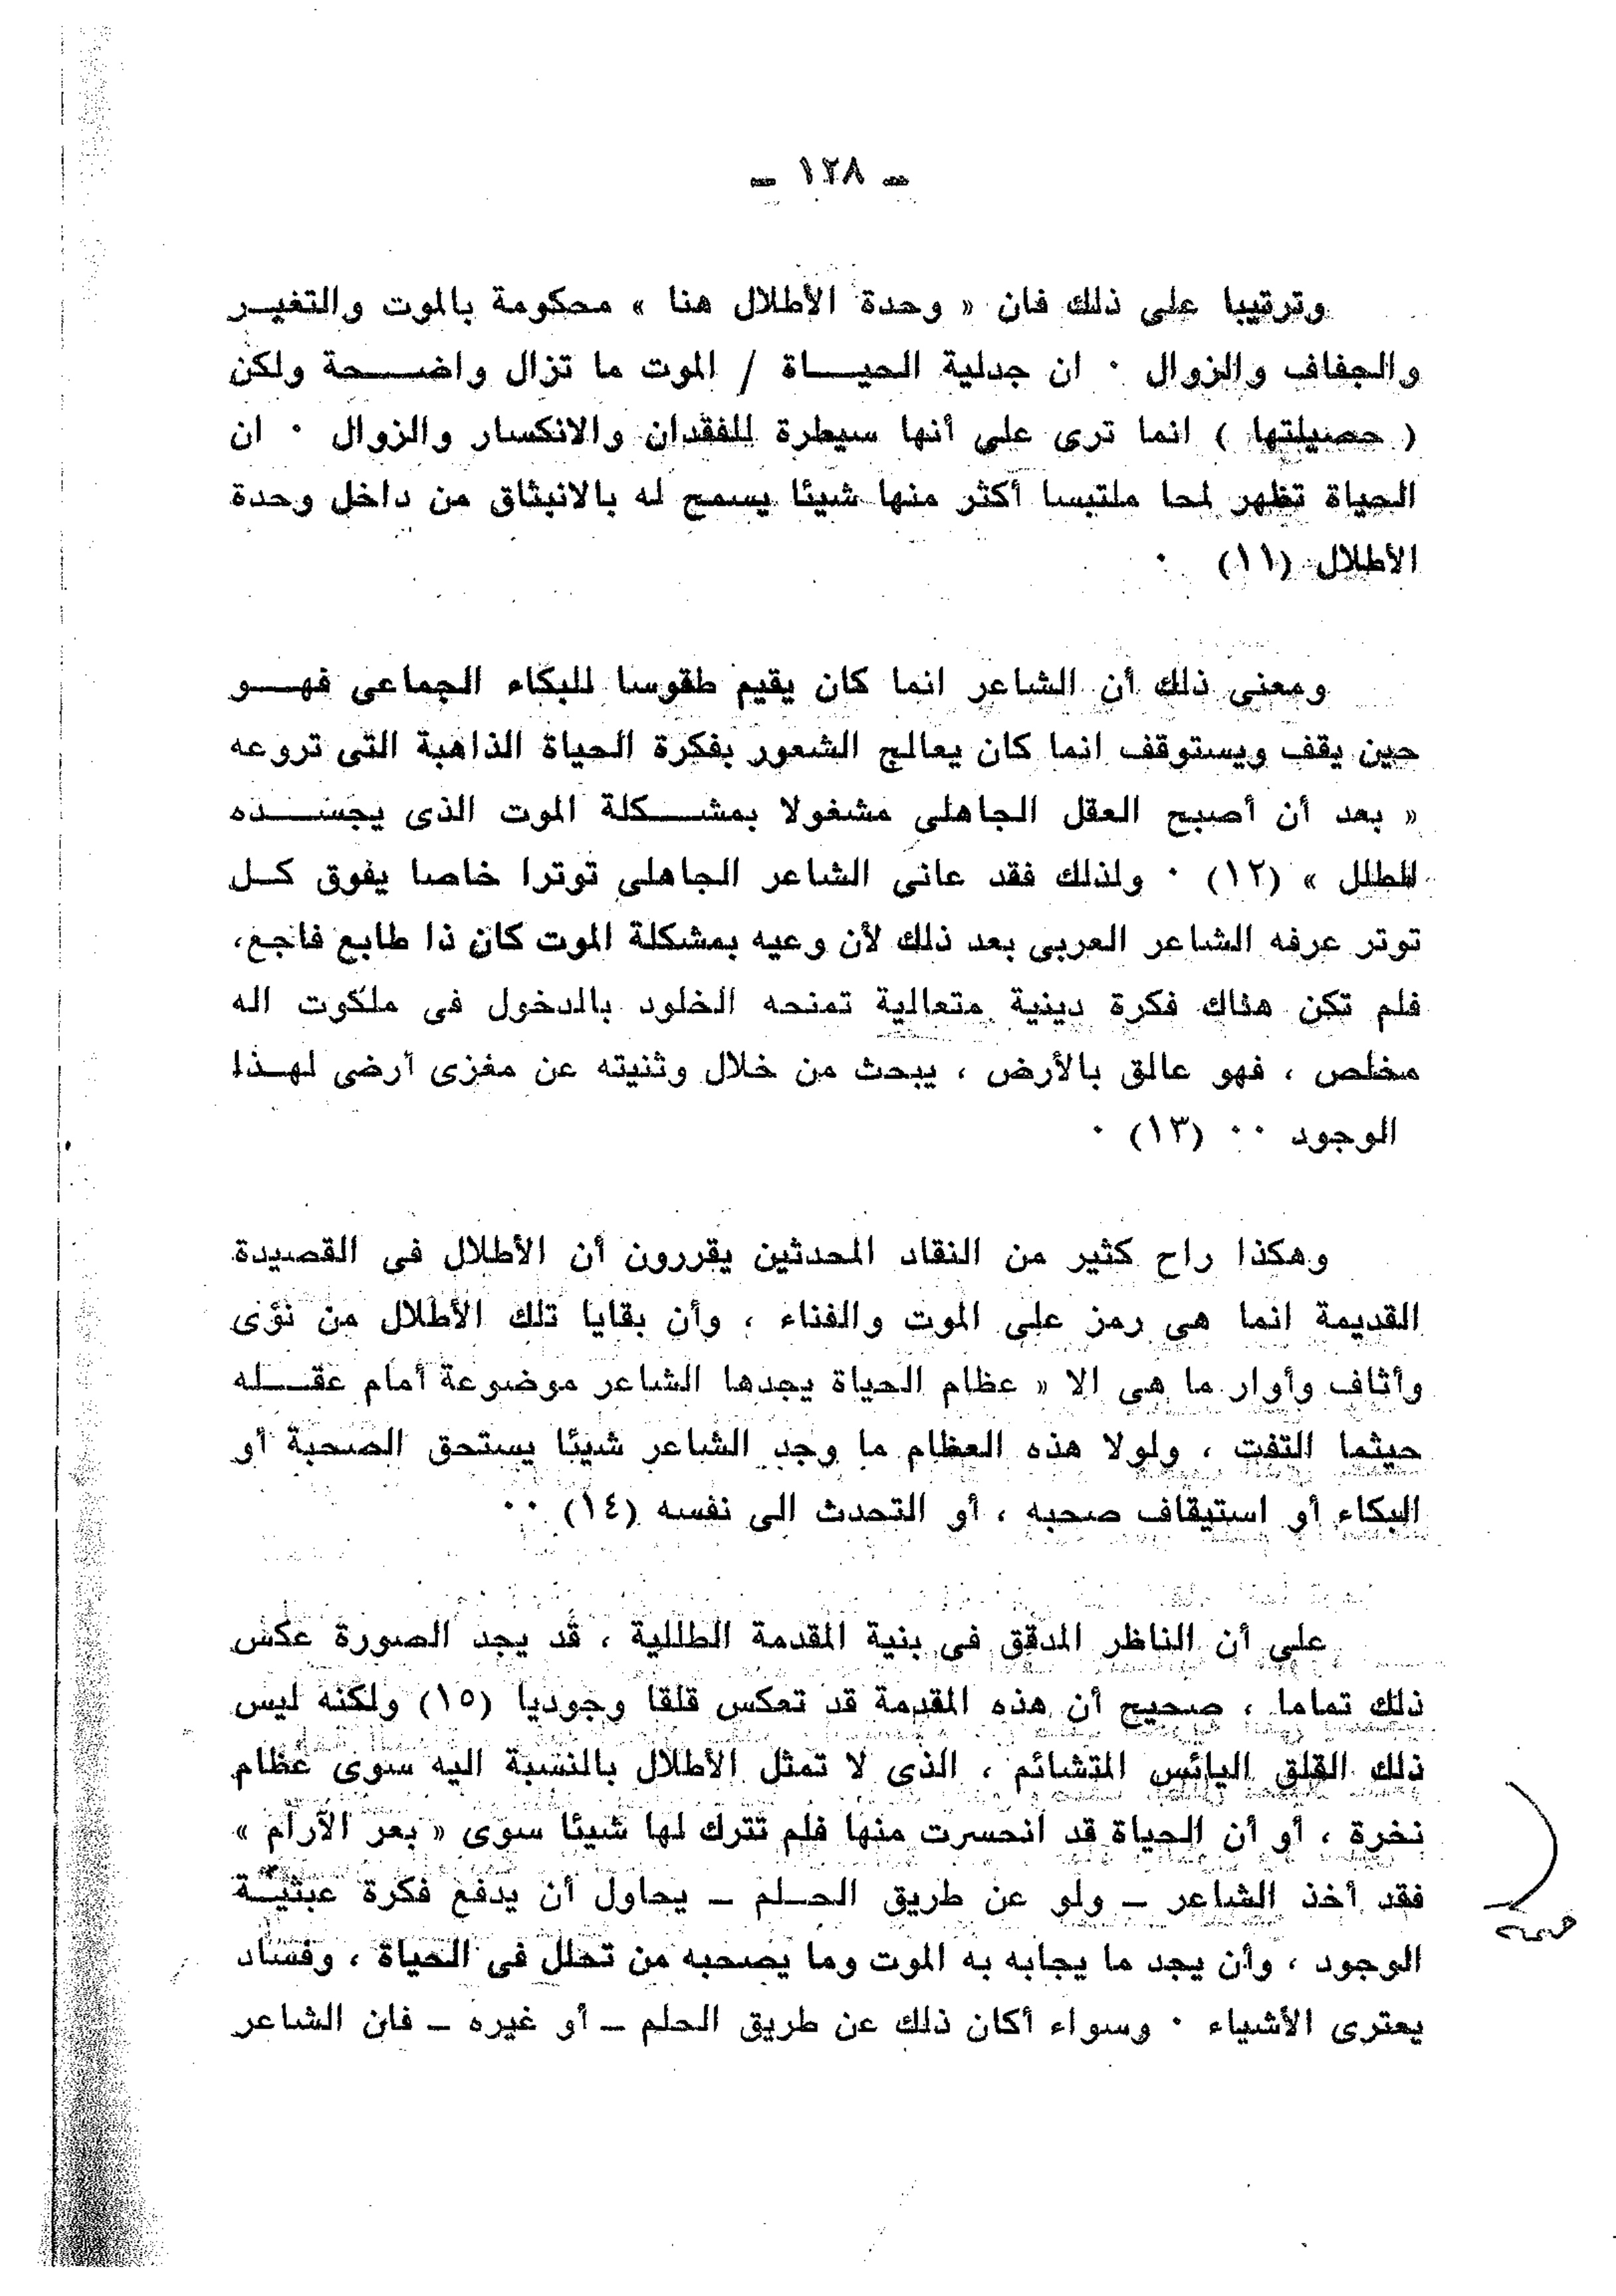 ـ ١٢٨ ـ
وترتيبا على ذلك فان « وحدة الأطلال هنا » محكومة بالموت والتغيـر
والجفاف والزوال ٠ ان جدلية الحيـــاة / الموت ما تزال واضــحة ولكن
( حصيلتها ) انما ترى على أنها سيطرة للفقدان والانكسار والزوال ٠ ان
الحياة تظهر لمحا ملتبسا أكثر منها شيئا يسمح له بالانبثاق من داخل وحدة
الأطلال (١١) ٠
ومعنى ذلك أن الشاعر انما كان يقيم طقوسا للبكاء الجماعى فهــو
حين يقف ويستوقف انما كان يعالج الشعور بفكرة الحياة الذاهبة التى تروعه
« بعد أن أصبح العقل الجاهلى مشغولا بمشــكلة الموت الذى يجســده
للطلل » (١٢) ٠ ولذلك فقد عانى الشاعر الجاهلى توترا خاصا يفوق كـل
توتر عرفه الشاعر العربى بعد ذلك لأن وعيه بمشكلة الموت كان ذا طابع فاجع،
فلم تكن هناك فكرة دينية متعالية تمنحه الخلود بالدخول فى ملكوت اله
مخلص ، فهو عالق بالأرض ، يبحث من خلال وثنيته عن مغزى أرضى لهـذا
الوجود ٠٠ (١٣) ٠
وهكذا راح كثير من النقاد المحدثين يقررون أن الأطلال فى القصيدة
القديمة انما هى رمز على الموت والفناء ، وأن بقايا تلك الأطلال من نؤى
وأثاف وأوار ما هى الا « عظام الحياة يجدها الشاعر موضوعة أمام عقــله
حيثما التفت ، ولولا هذه العظام ما وجد الشاعر شيئا يستحق الصحبة أو
البكاء أو استيقاف صحبه ، أو التحدث الى نفسه (١٤) ٠٠
على أن الناظر المدقق فى بنية المقدمة الطللية ، قد يجد الصورة عكس
ذلك تماما ، صحيح أن هذه المقدمة قد تعكس قلقا وجوديا (١٥) ولكنه ليس
ذلك القلق اليائس المتشائم ، الذى لا تمثل الأطلال بالنسبة اليه سوى عظام
نخرة ، أو أن الحياة قد انحسرت منها فلم تترك لها شيئا سوى « بعر الآرام »
فقد أخذ الشاعر ـ ولو عن طريق الحــلم ـ يحاول أن يدفع فكرة عبثيـة
الوجود ، وأن يجد ما يجابه به الموت وما يصحبه من تحلل فى الحياة ، وفساد
يعترى الأشياء ٠ وسواء أكان ذلك عن طريق الحلم ـ أو غيره ـ فان الشاعر